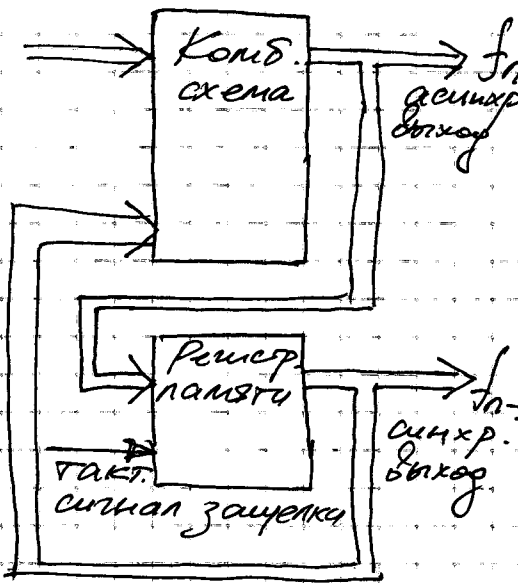 Комб.
схема
fn
асинхр.
выход
Регистр.
памяти
fn-
синхр.
выход
такт.
сигнал защелки